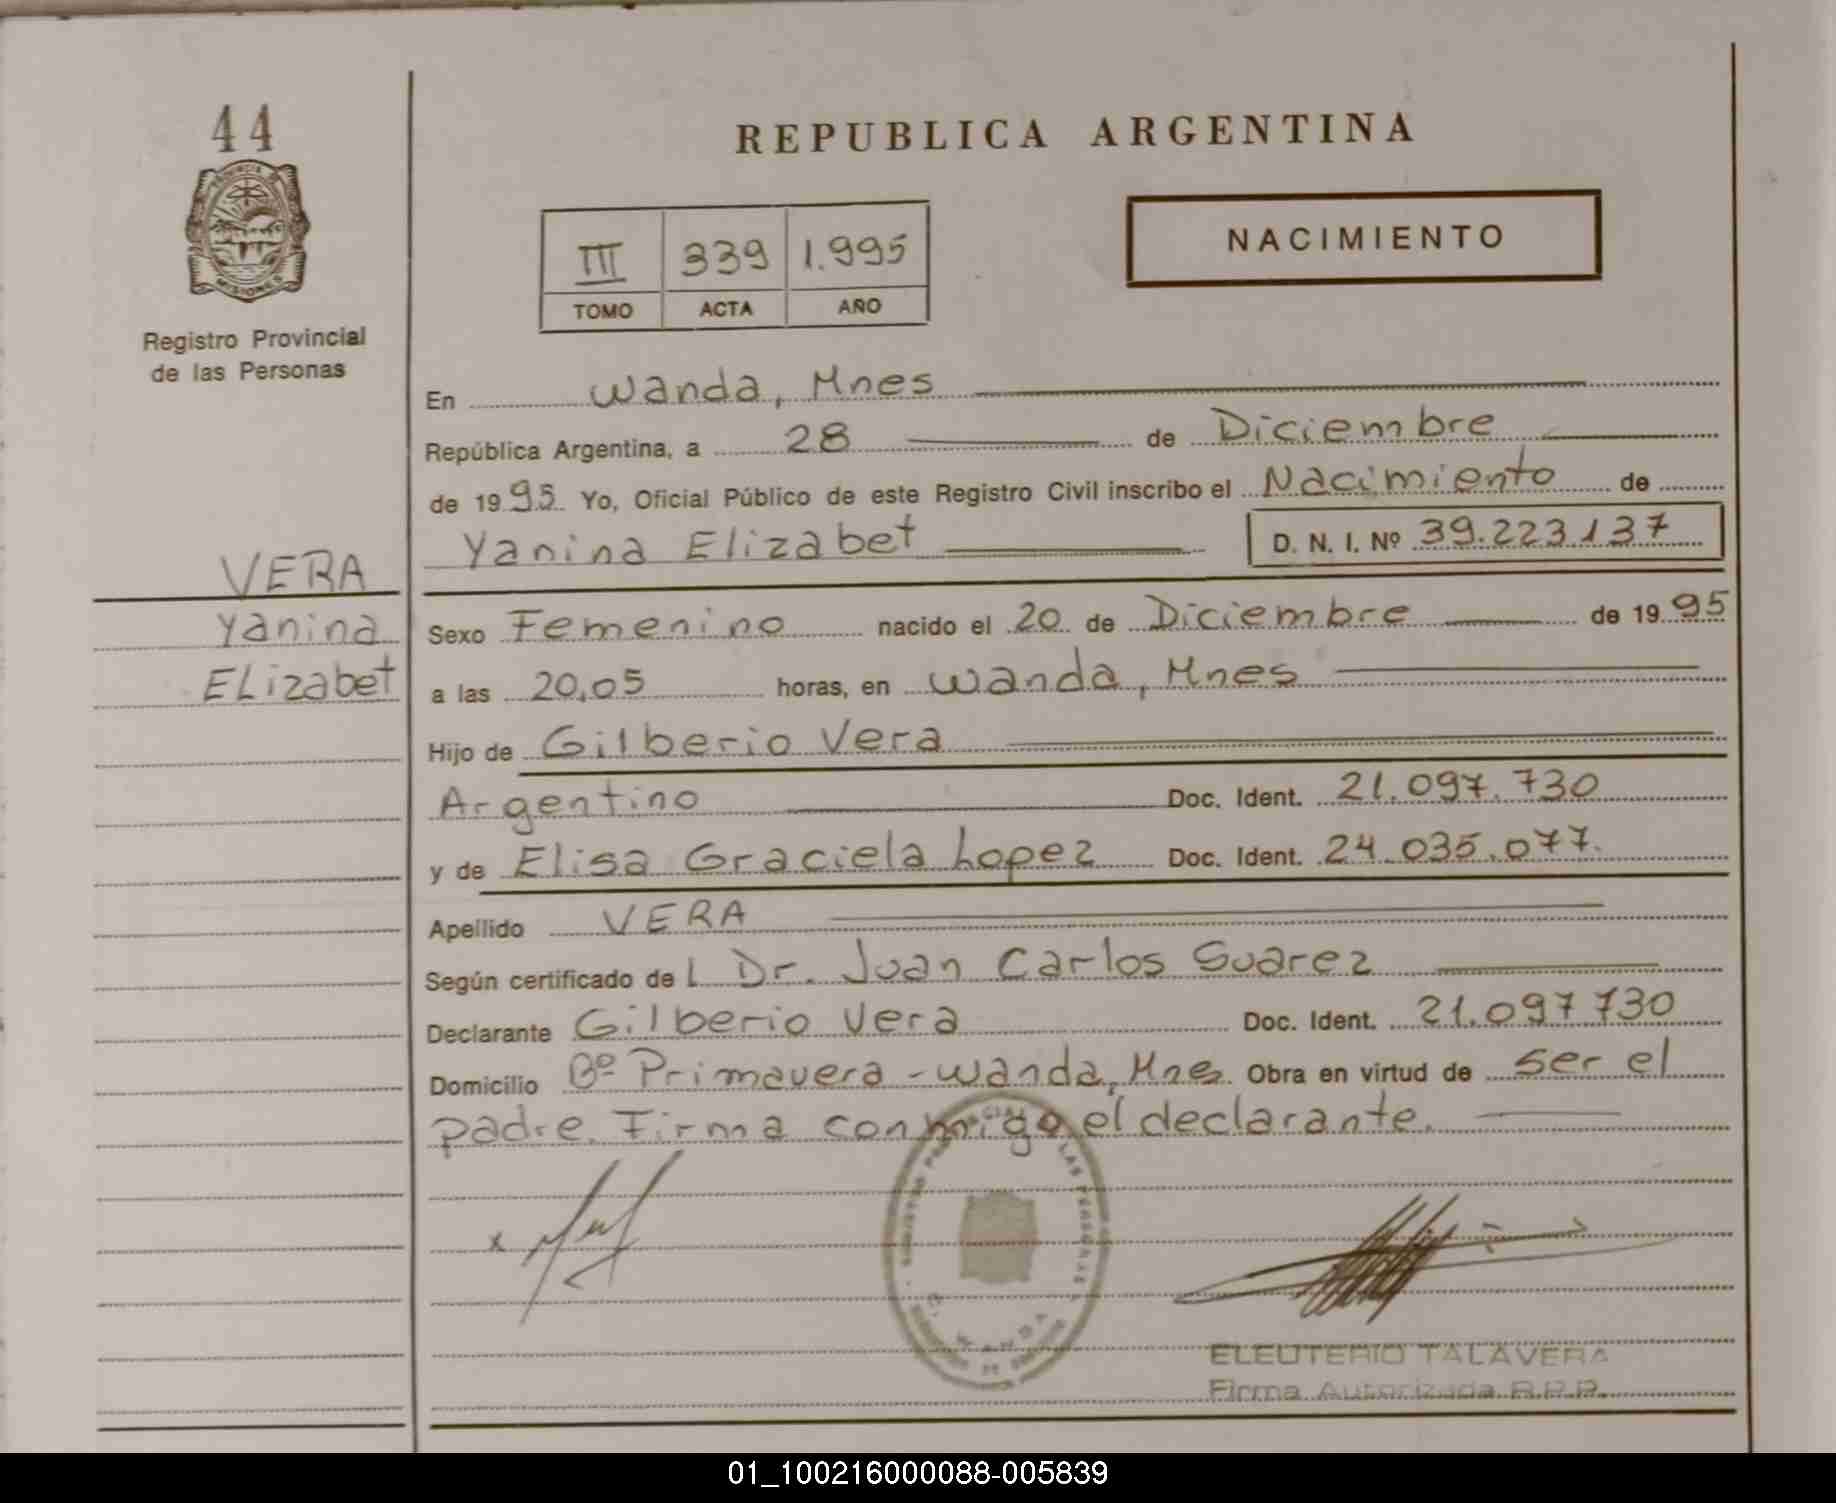 44
PROVINCIA DE
MISIONES
Registro Provincial
de las Personas
REPUBLICA ARGENTINA
III 339 1.995
TOMO ACTA AÑO
NACIMIENTO
En Wanda, Mnes
República Argentina, a 28 de Diciembre
de 1995. Yo, Oficial Público de este Registro Civil inscribo el Nacimiento de
Yanina Elizabet D. N. I. Nº 39.223.137
VERA
Yanina
ELizabet
Sexo Femenino nacido el 20 de Diciembre de 1995
a las 20,05 horas, en Wanda, Mnes
Hijo de Gilberio Vera
Argentino Doc. Ident. 21.097.730
y de Elisa Graciela Lopez Doc. Ident. 24.035.077.
Apellido VERA
Según certificado de l Dr. Juan Carlos Suarez
Declarante Gilberio Vera Doc. Ident. 21.097730
Domicilio Bº Primavera - Wanda, Mnes. Obra en virtud de ser el
padre. Firma conmigo el declarante.
x
WANDA
ELEUTERIO TALAVERA
Firma Autorizada R.P.P.
01_100216000088-005839